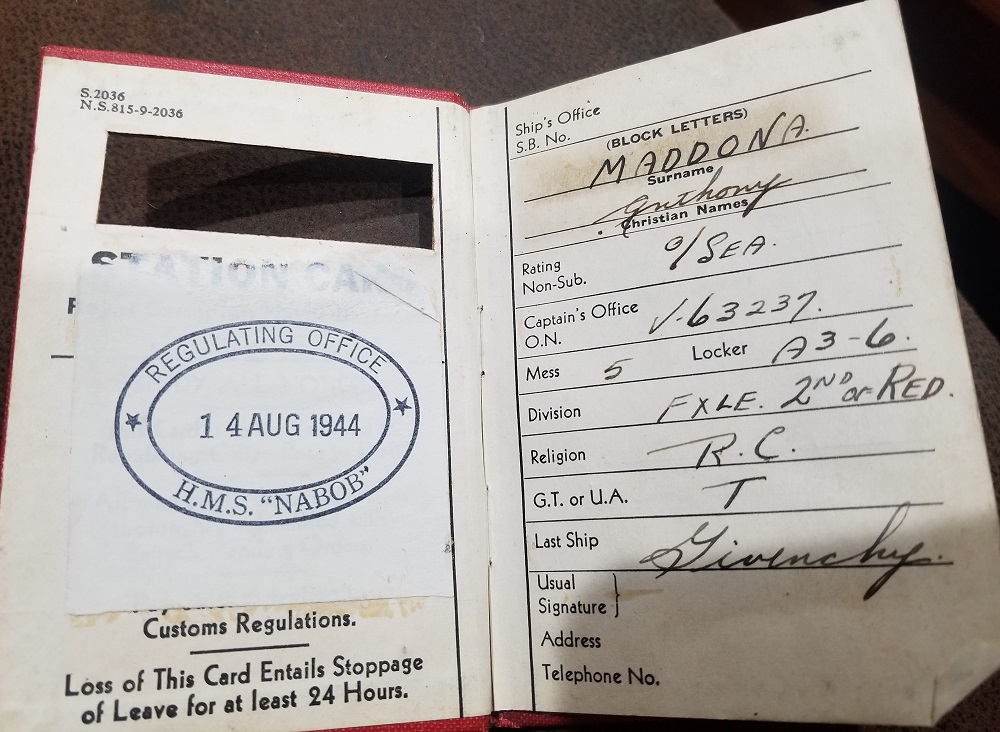 S.2036
N.S.815-9-2036
STATION CARD
REGULATING OFFICE
14 AUG 1944
H.M.S. "NABOB"
Customs Regulations.
Loss of This Card Entails Stoppage
of Leave for at least 24 Hours.
Ship's Office
S.B. No.
(BLOCK LETTERS)
MADDONA.
Surname
Anthony
Christian Names
Rating O/SEA.
Non-Sub.
Captain's Office V-63237.
O.N.
Mess 5 Locker A3-6.
Division FXLE. 2ND OF RED.
Religion R.C.
G.T. or U.A. T
Last Ship Givenchy.
Usual
Signature }
Address
Telephone No.